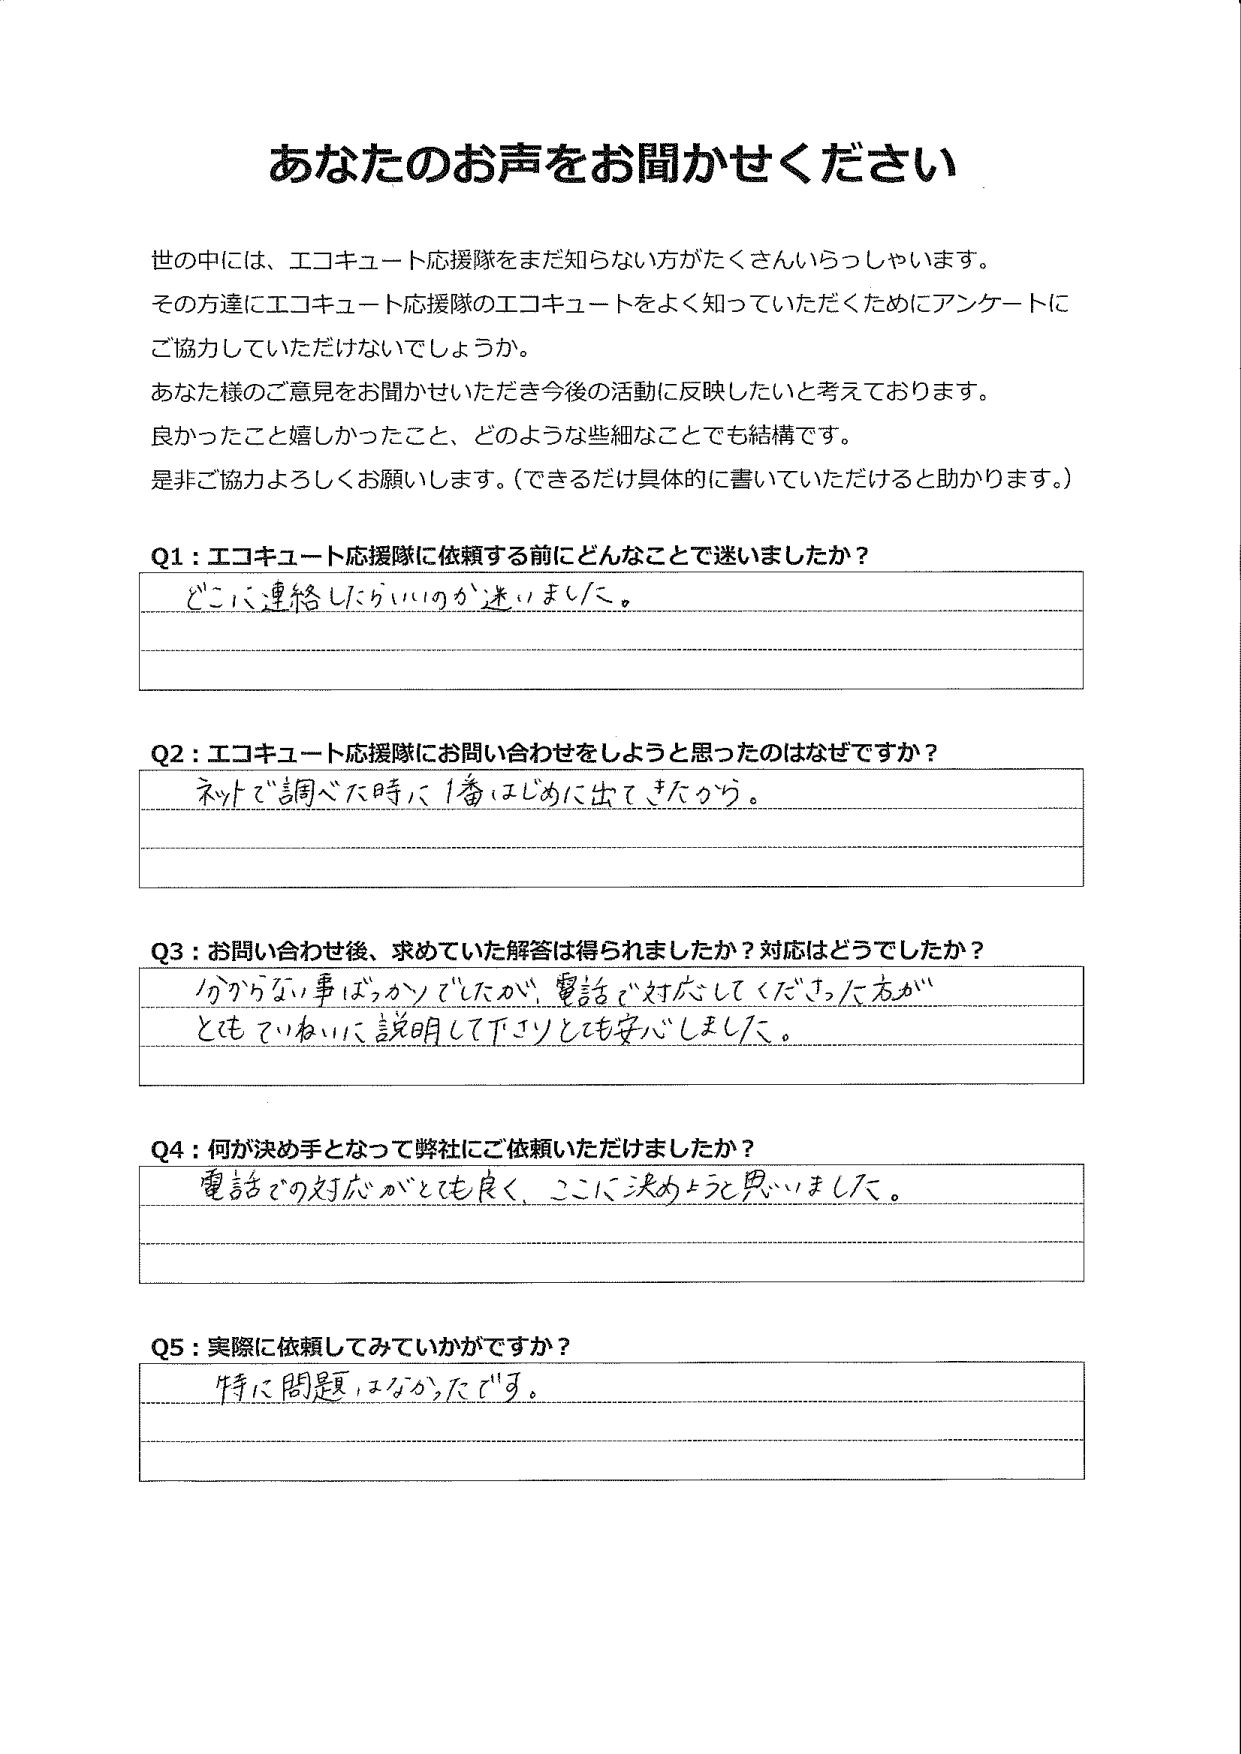 あなたのお声をお聞かせください
世の中には、エコキュート応援隊をまだ知らない方がたくさんいらっしゃいます。
その方達にエコキュート応援隊のエコキュートをよく知っていただくためにアンケートに
ご協力していただけないでしょうか。
あなた様のご意見をお聞かせいただき今後の活動に反映したいと考えております。
良かったこと嬉しかったこと、どのような些細なことでも結構です。
是非ご協力よろしくお願いします。(できるだけ具体的に書いていただけると助かります。)
Q1：エコキュート応援隊に依頼する前にどんなことで迷いましたか？
どこに連絡したらいいのか迷いました。
Q2：エコキュート応援隊にお問い合わせをしようと思ったのはなぜですか？
ネットで調べた時に1番はじめに出てきたから。
Q3：お問い合わせ後、求めていた解答は得られましたか？対応はどうでしたか？
分からない事ばっかりでしたが、電話で対応してくださった方が
とてもていねいに説明して下さりとても安心しました。
Q4：何が決め手となって弊社にご依頼いただけましたか？
電話での対応がとても良く、ここに決めようと思いました。
Q5：実際に依頼してみていかがですか？
特に問題はなかったです。